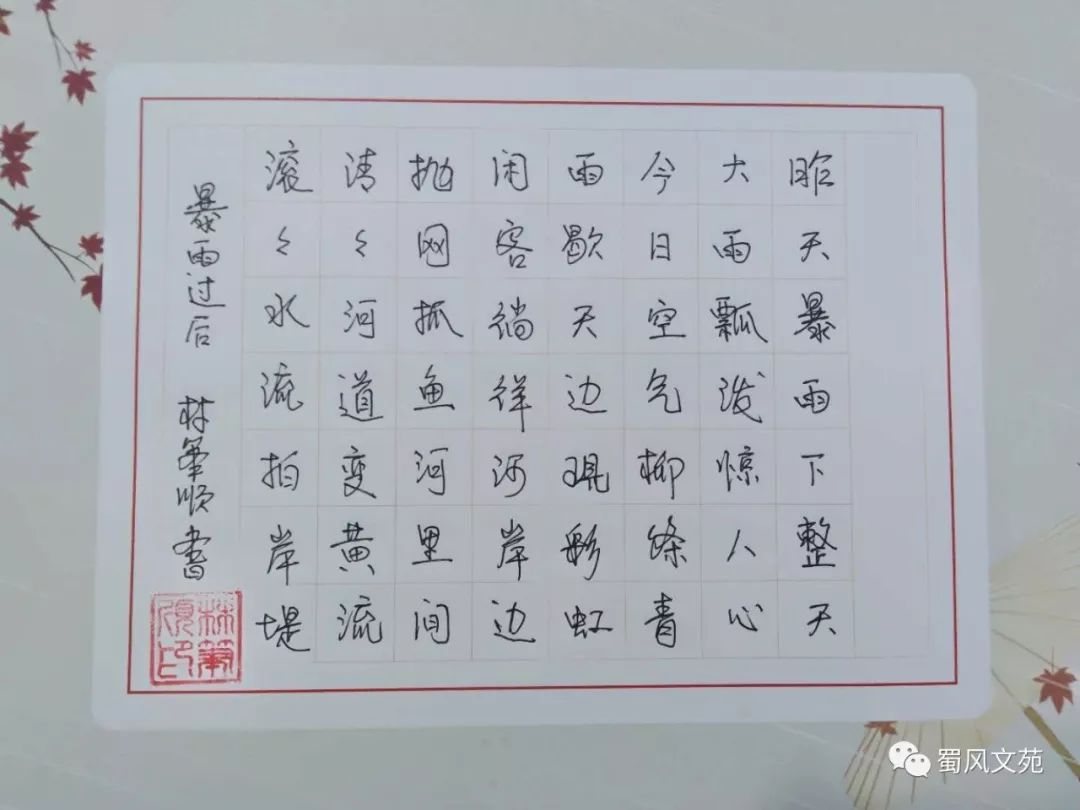 昨天暴雨下整天
大雨瓢泼惊人心
今日空气柳条青
雨歇天边现彩虹
闲客徜徉河岸边
抛网抓鱼河里间
清々河道变黄流
滚々水流拍岸堤
暴雨过后 林筆顺書
林筆順印
蜀风文苑